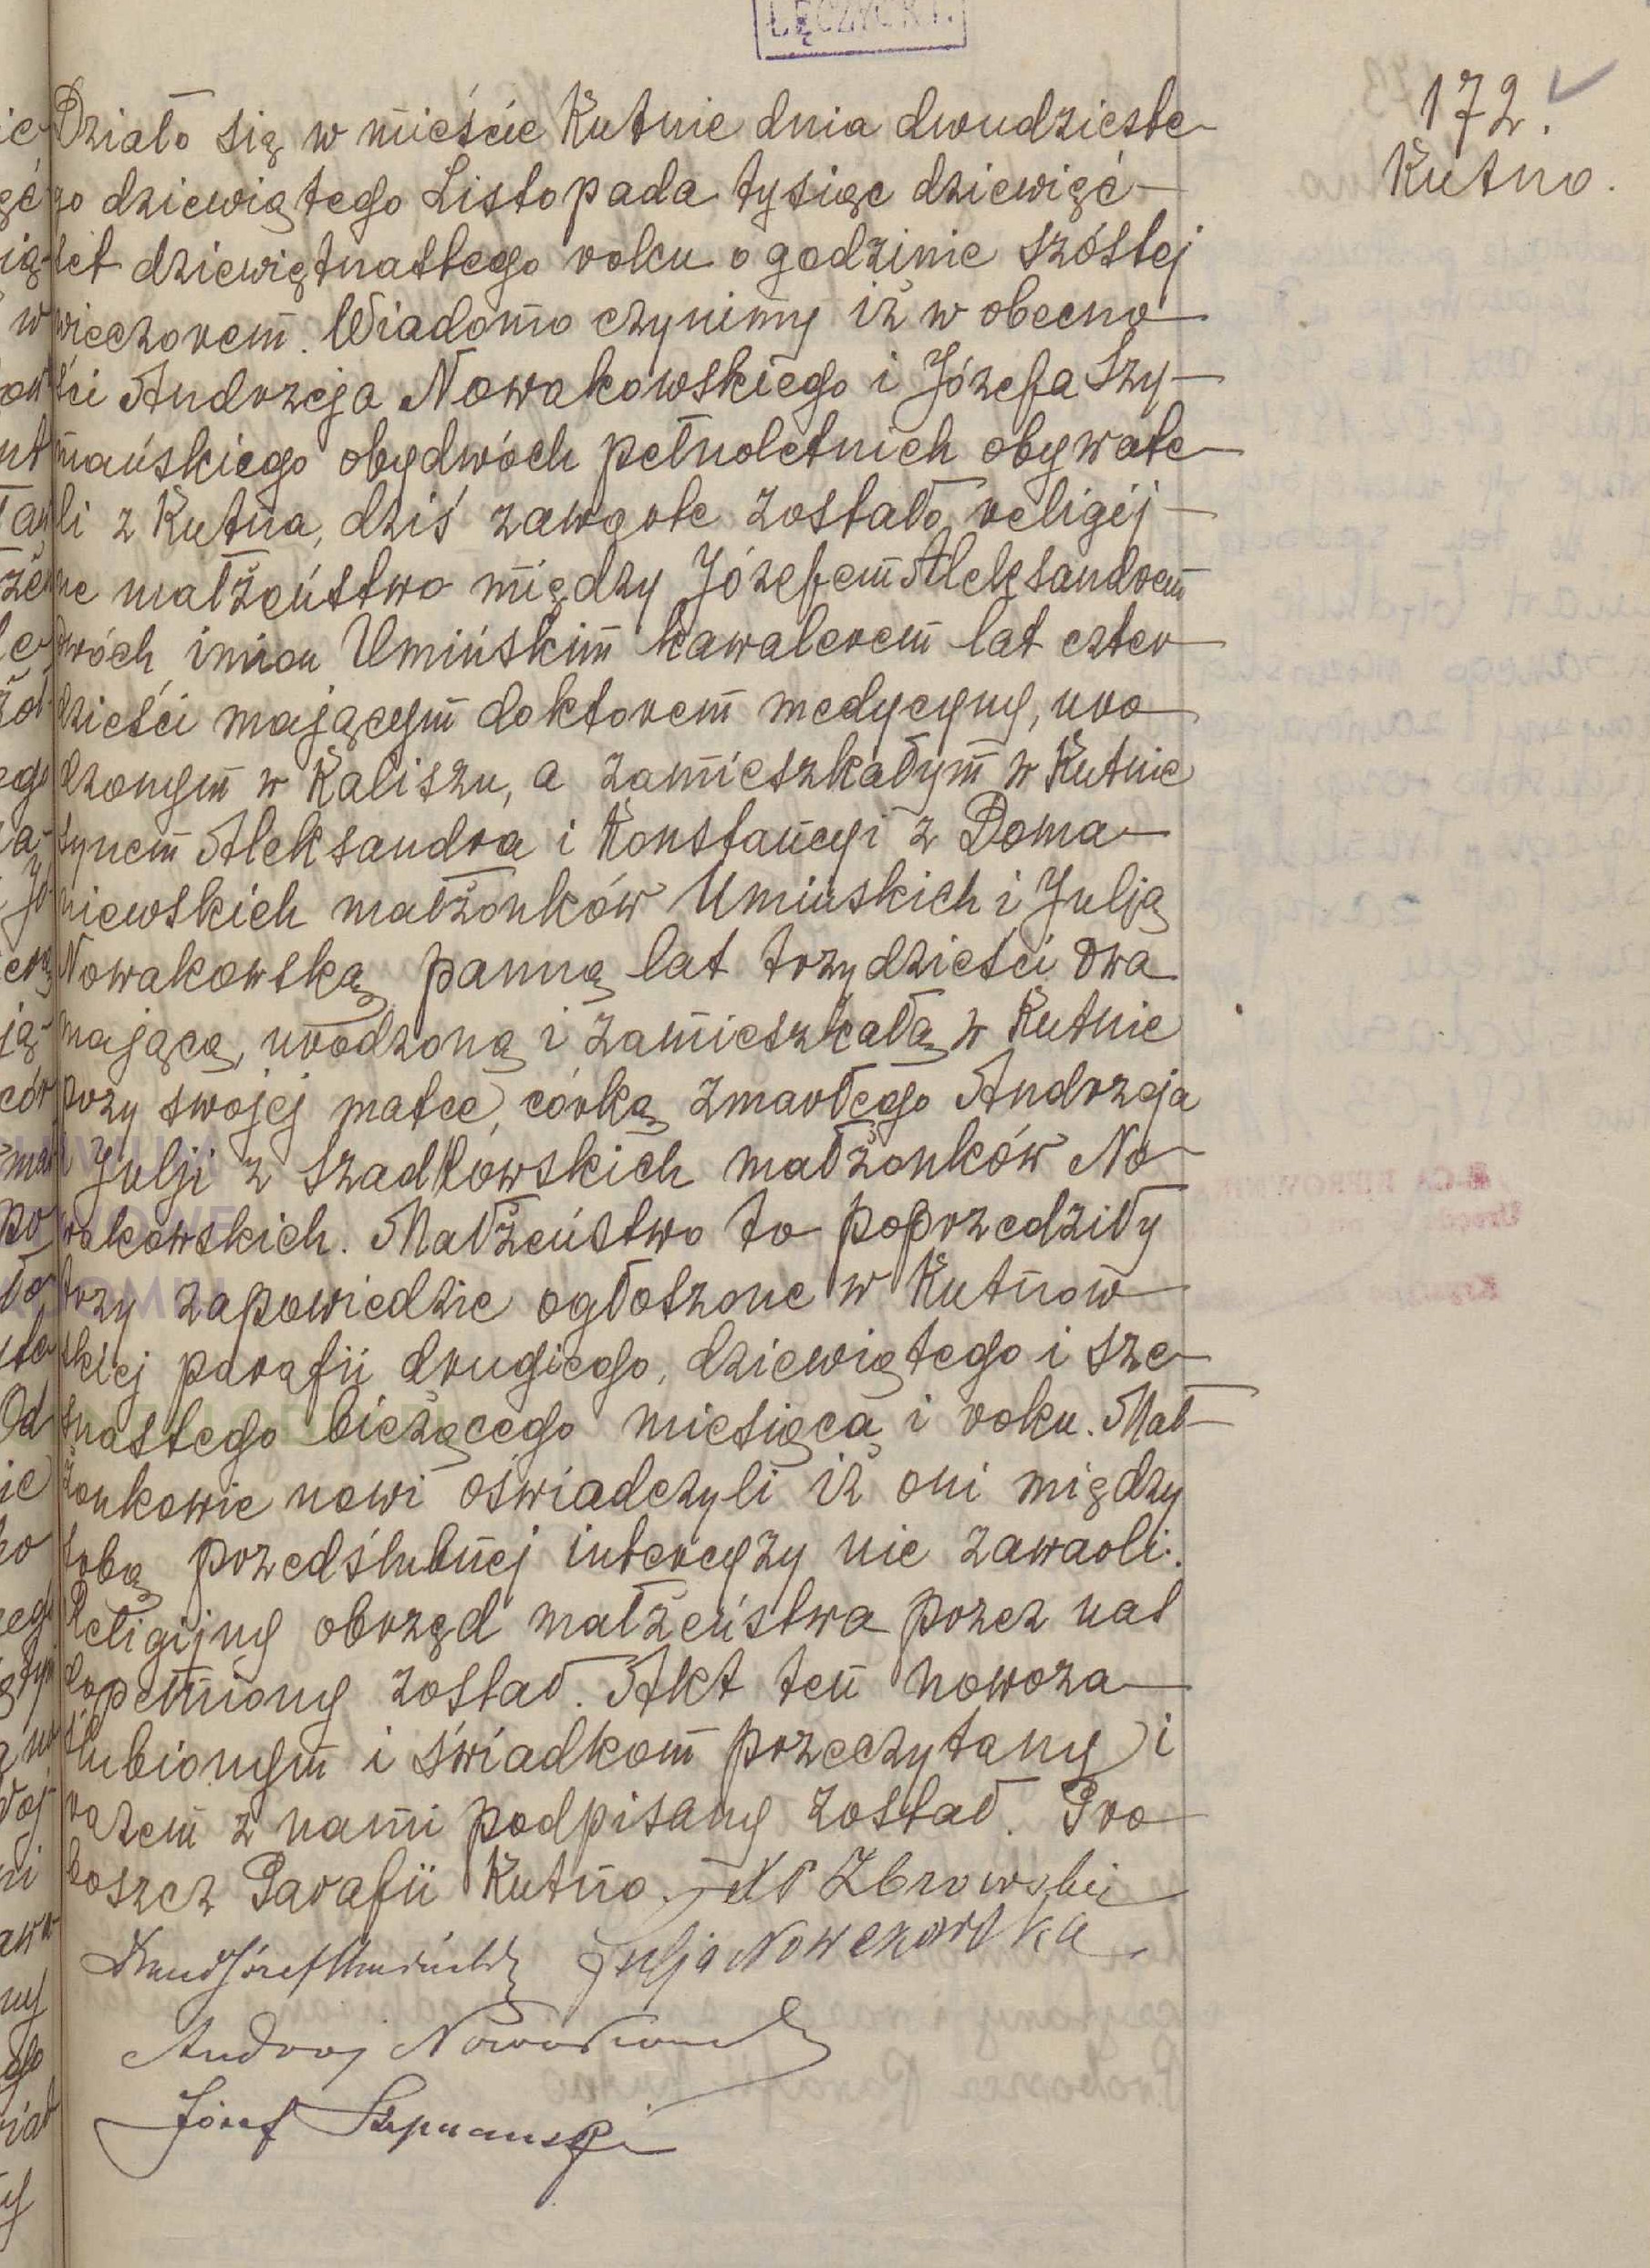 ŁĘCZYCKI.
172.
Kutno.
Działo się w mieście Kutnie dnia dwudzieste-
go dziewiątego Listopada tysiąc dziewięć-
set dziewiętnastego roku o godzinie szóstej
wieczorem. Wiadomo czynimy iż w obecno-
ści Andrzeja Nowakowskiego i Józefa Szy-
mańskiego obydwóch pełnoletnich obywate-
li z Kutna, dziś zawarte zostało religij-
ne małżeństwo między Józefem Aleksandrem
dwóch imion Umińskim kawalerem lat czter-
dzieści mającym doktorem medycyny, uro-
dzonym w Kaliszu, a zamieszkałym w Kutnie
synem Aleksandra i Konstancyi z Doma-
niewskich małżonków Umińskich i Julją
Nowakowską panną lat trzydzieści dwa
mającą, urodzoną i zamieszkałą w Kutnie
przy swojej matce, córką zmarłego Andrzeja
i Julji z Szadkowskich małżonków No-
wakowskich. Małżeństwo to poprzedziły
trzy zapowiedzie ogłoszone w Kutnow-
skiej parafii drugiego, dziewiątego i sze-
snastego bieżącego miesiąca i roku. Mał-
żonkowie nowi oświadczyli iż oni między
sobą przedślubnej intercyzy nie zawarli.
Religijny obrzęd małżeństwa przez nas
dopełniony został. Akt ten nowoza-
ślubionym i świadkom przeczytany i
razem z nami podpisany został. Pro-
boszcz Parafii Kutno
Julja Nowakowska
Andrzej Nowakowski
Józef Szymański